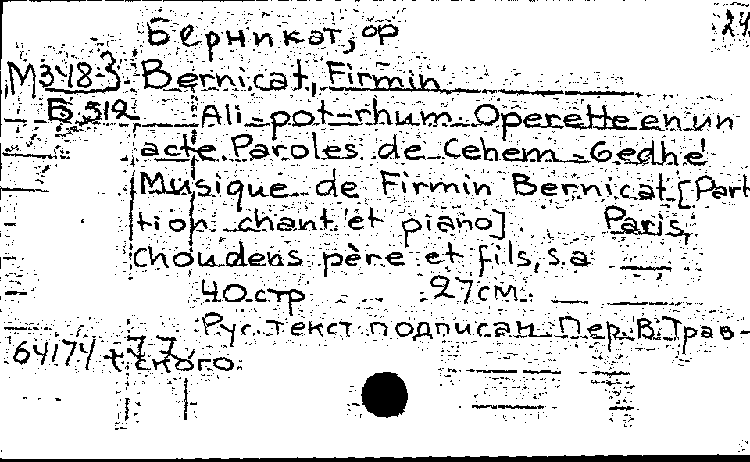 24
Берникат, ор
М348-3 Bernicat, Firmin
Б 512
Ali-pot-rhum. Operette en un
acte. Paroles de Cehem-Gedhé
Musique de Firmin Bernicat [Parti
tion chant et piano]. Paris,
Choudens père et fils, s.a
40.стр 27см.
Рус. текст подписан. Пер. В. Трав-
64174 ского.